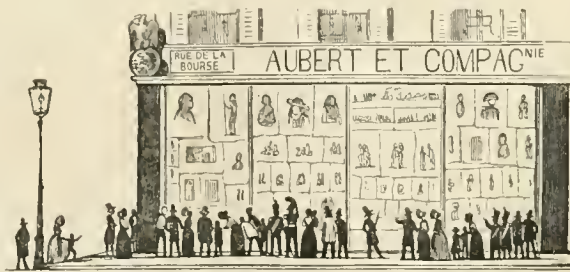 RUE DE LA
BOURSE
AUBERT ET COMPAGNIE